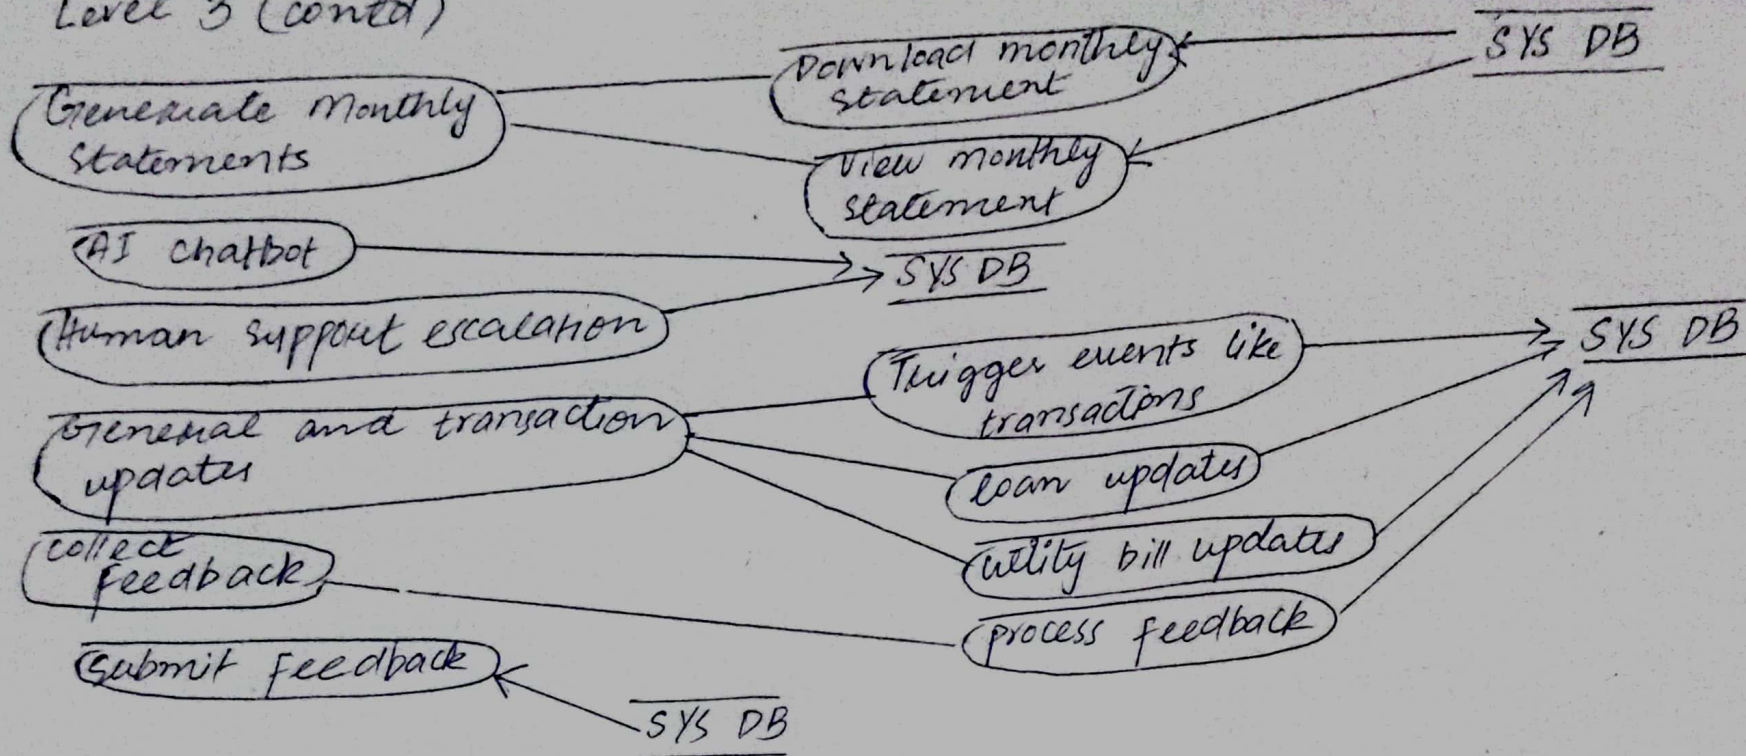 Level 3 (contd)
Generate Monthly
Statements
Download monthly
statement
SYS DB
View monthly
statement
AI chatbot
SYS DB
Human support escalation
General and transaction
updates
Trigger events like
transactions
SYS DB
loan updates
utility bill updates
collect
Feedback
process feedback
Submit feedback
SYS DB